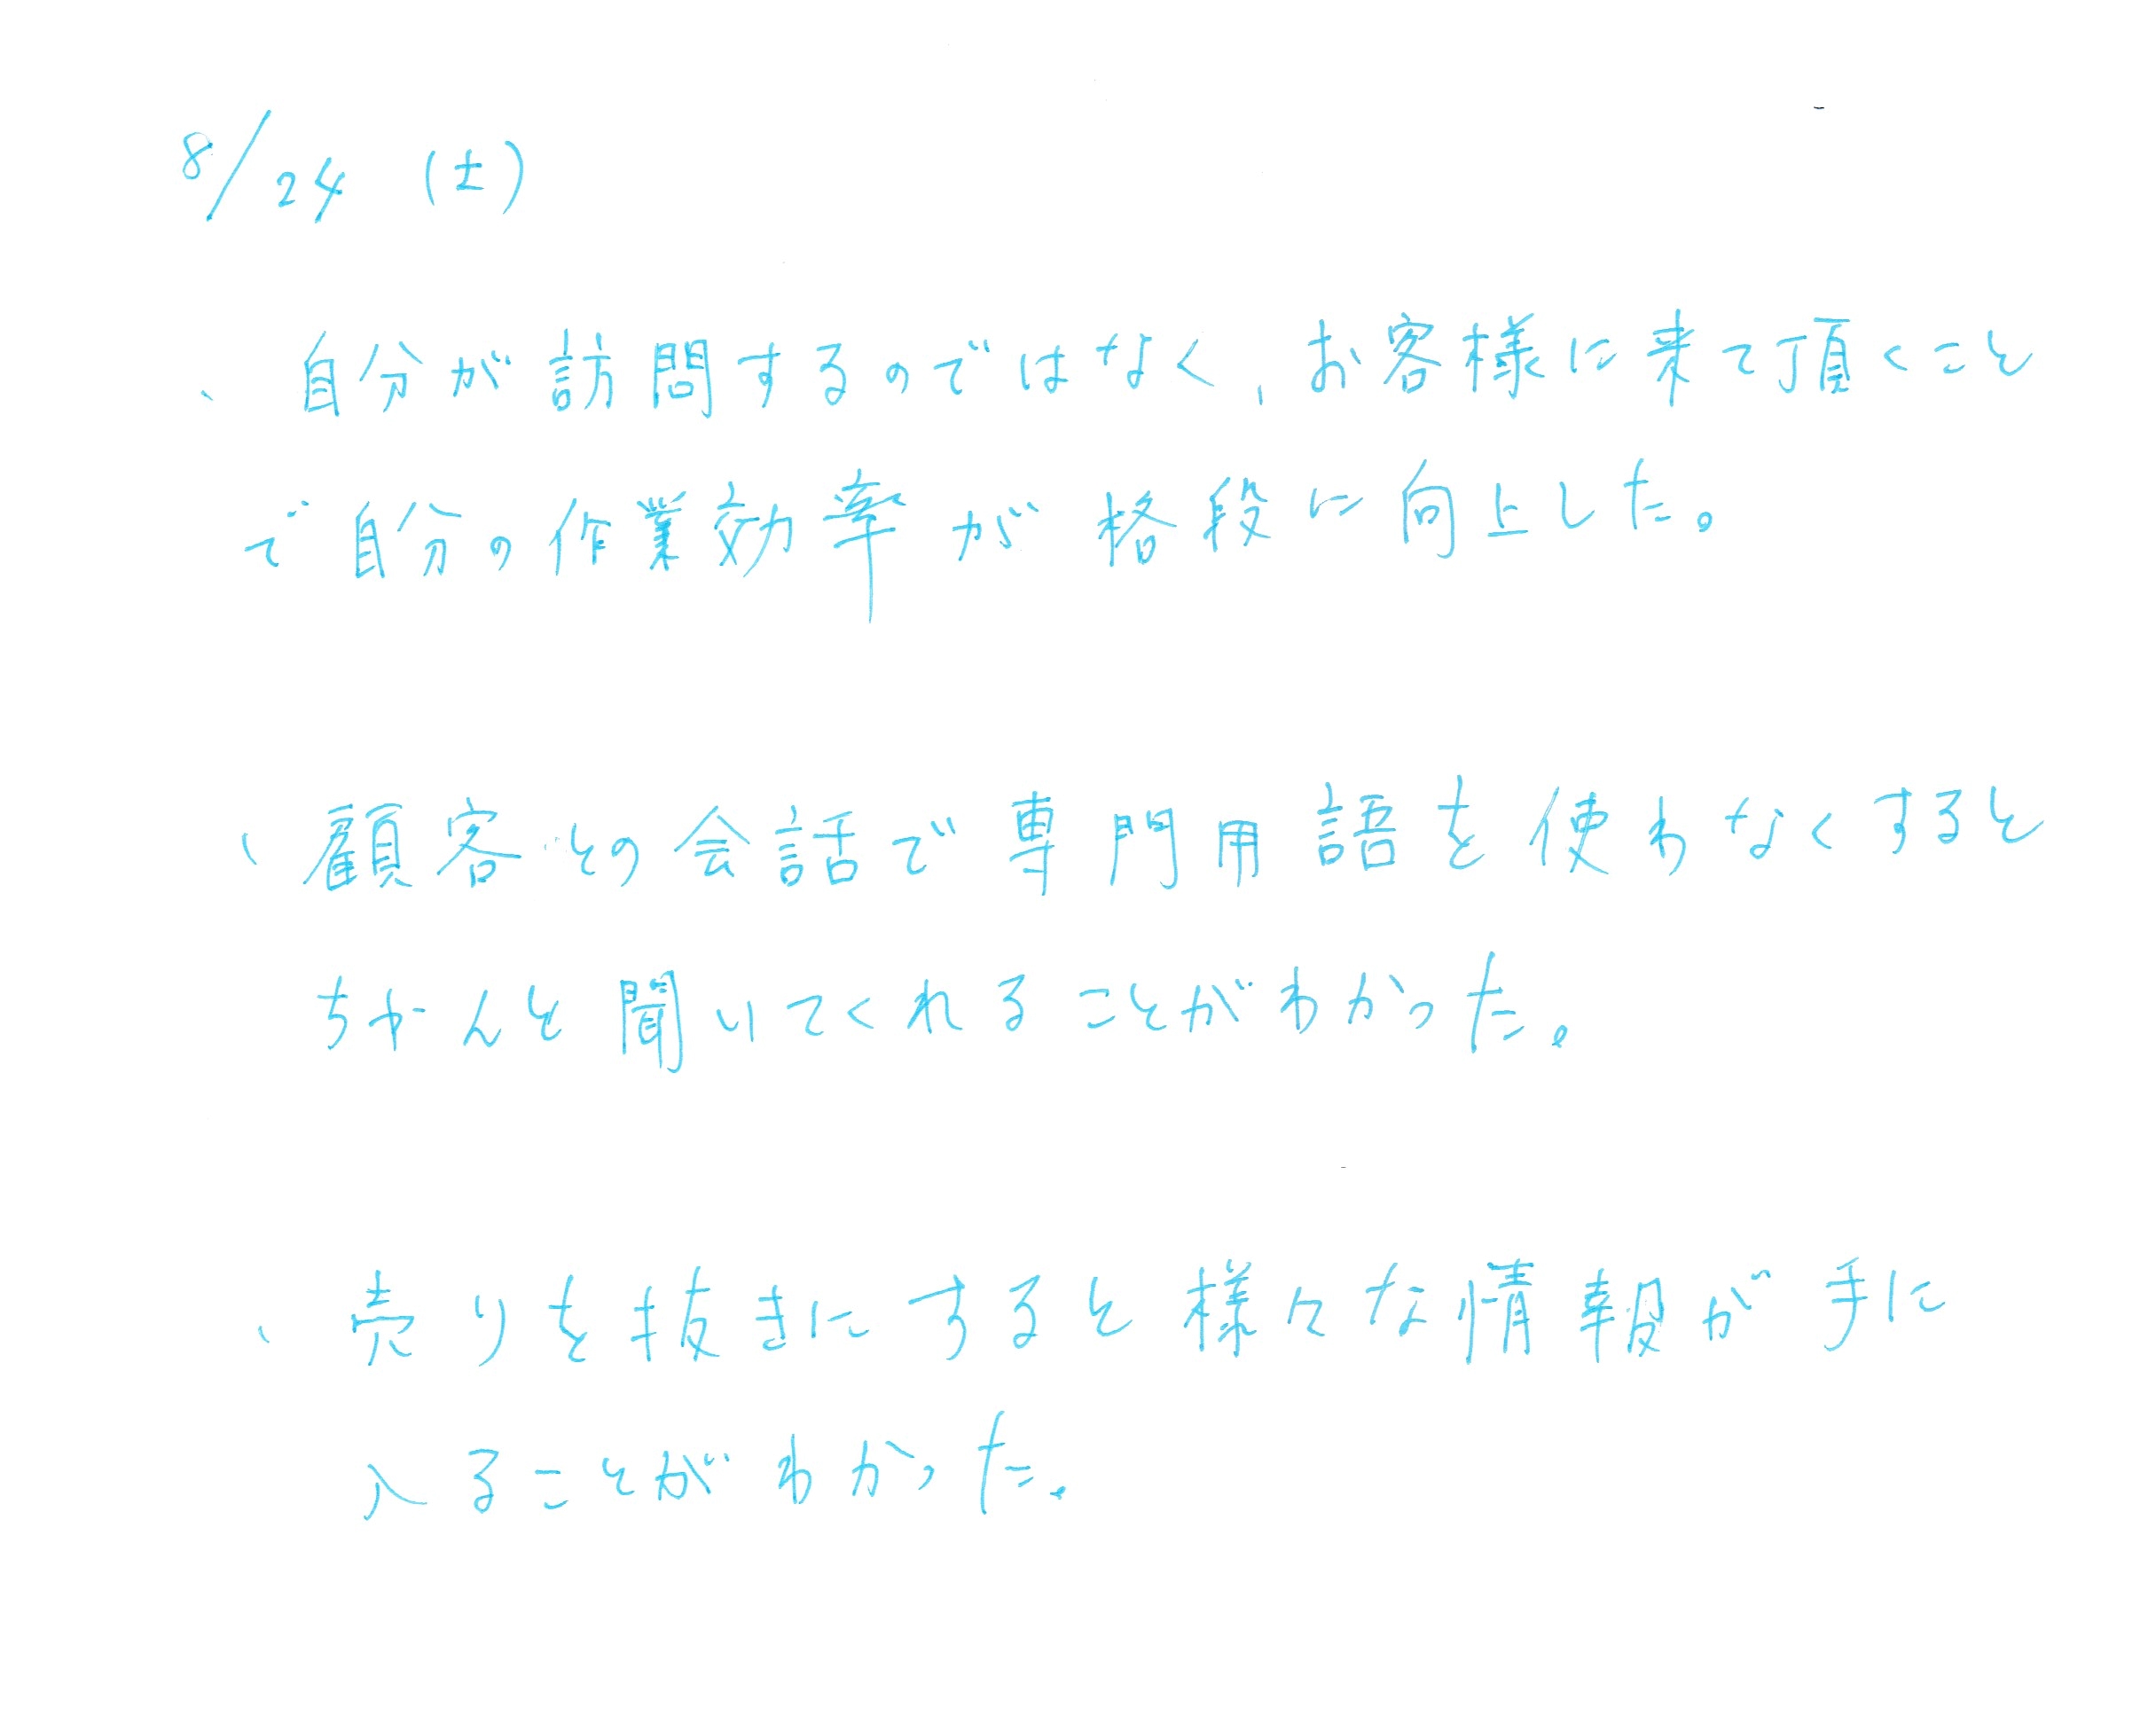 8/24 (土)
、自分が訪問するのではなく、お客様に来て頂くこと
で自分の作業効率が格段に向上した。
、顧客との会話で専門用語を使わなくすると
ちゃんと聞いてくれることがわかった。
、売りを抜きにすると様々な情報が手に
入ることがわかった。